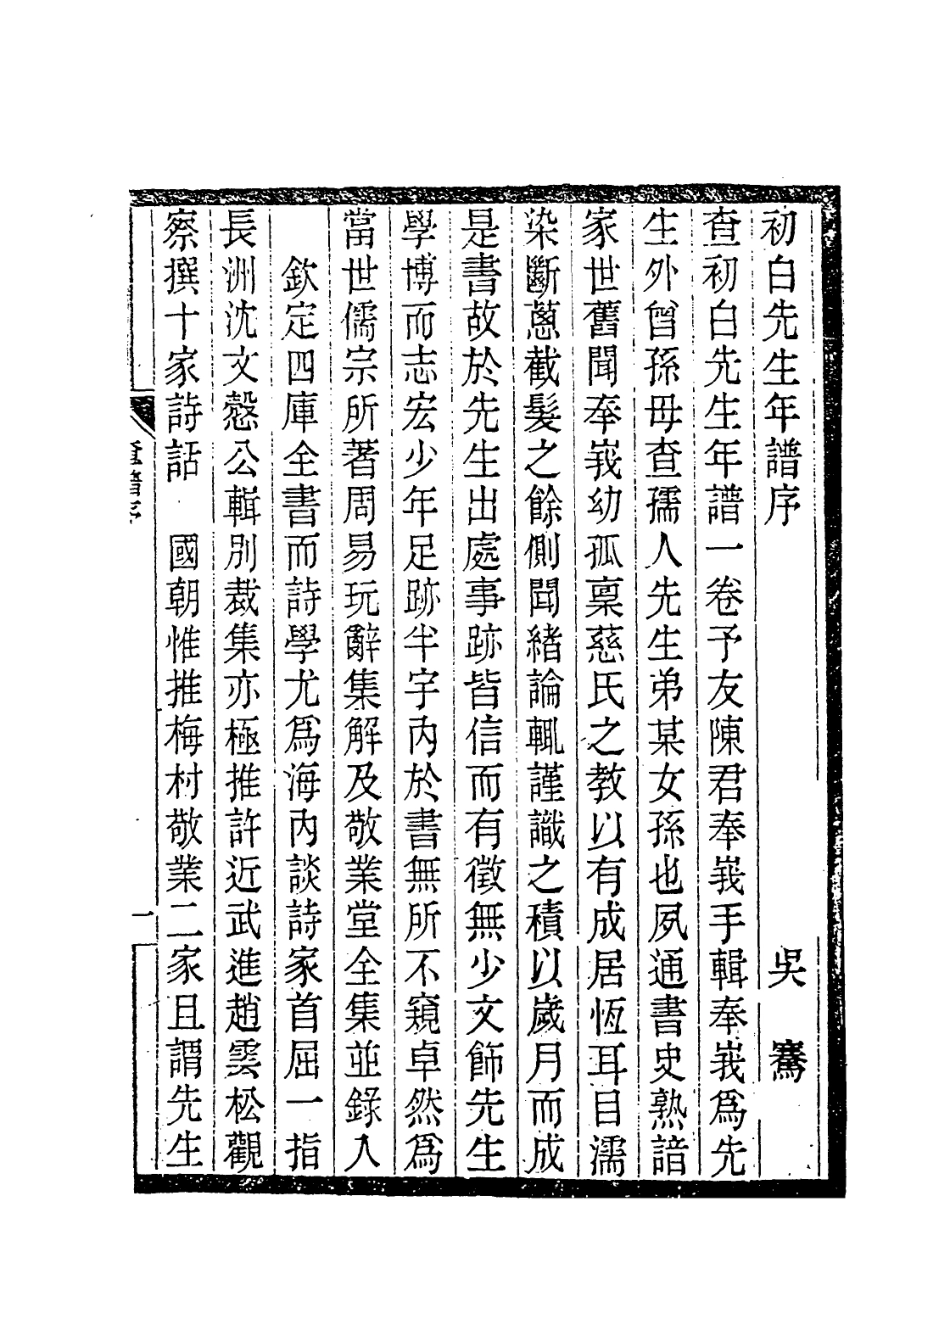 初白先生年譜序
吳騫
查初白先生年譜一卷予友陳君奉峩手輯奉峩爲先
生外曾孫母查孺人先生弟某女孫也夙通書史熟諳
家世舊聞奉峩幼孤稟慈氏之教以有成居恆耳目濡
染斷蔥截髮之餘側聞緒論輒謹識之積以歲月而成
是書故於先生出處事跡皆信而有徵無少文飾先生
學博而志宏少年足跡半宇內於書無所不窺卓然爲
當世儒宗所著周易玩辭集解及敬業堂全集並錄入
欽定四庫全書而詩學尤爲海內談詩家首屈一指
長洲沈文慤公輯別裁集亦極推許近武進趙雲松觀
察撰十家詩話 國朝惟推梅村敬業二家且謂先生
查譜序
一